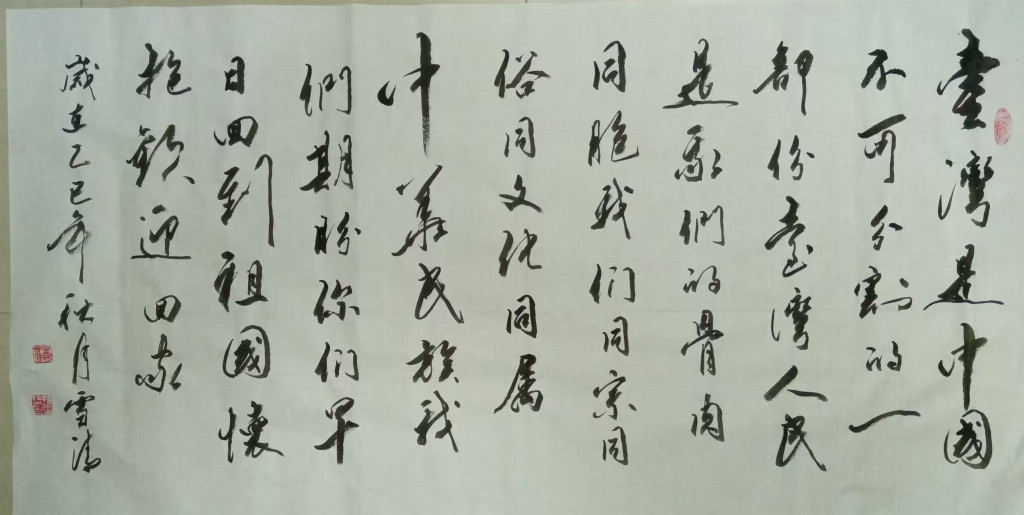 臺灣是中國
不可分割的一
部份臺灣人民
是我們的骨肉
同胞我们同宗同
俗同文化同属
中華民族我
們期盼你们早
日回到祖國懷
抱歡迎回家
歲在乙巳年秋月雪濤